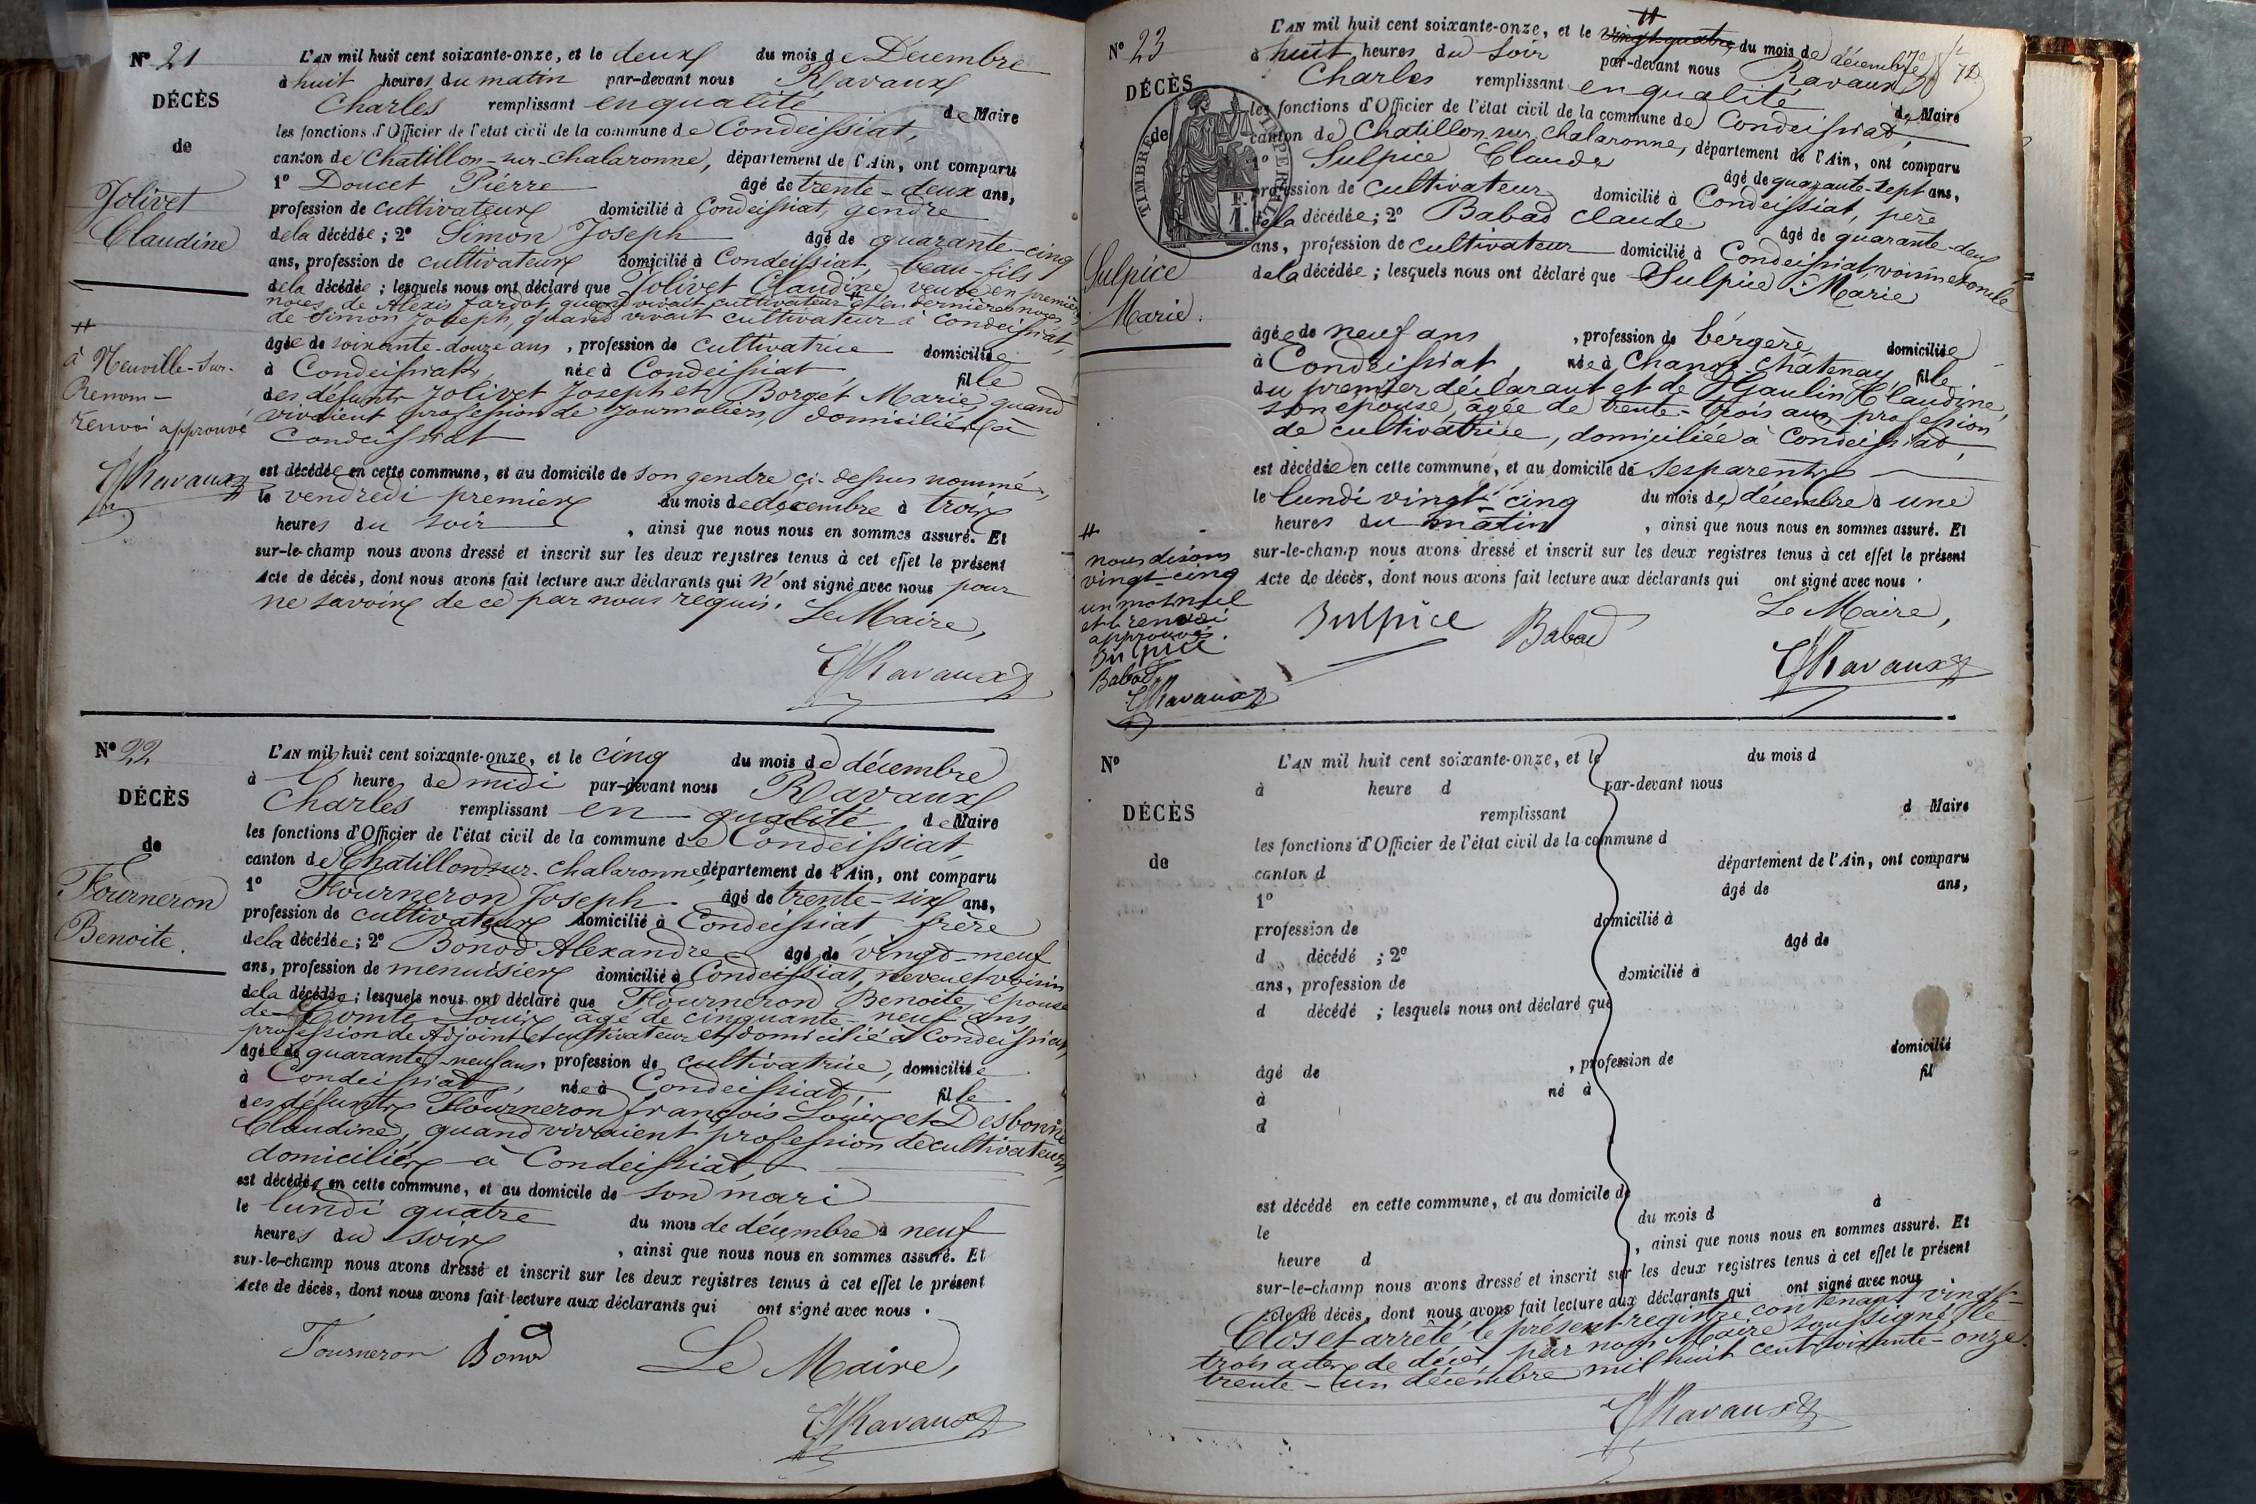 N° 21
DÉCÈS
de
Jolivet
Claudine
L'AN mil huit cent soixante-onze, et le deux du mois de Décembre
à huit heures du matin par-devant nous Ravaux
Charles remplissant en qualité de Maire
les fonctions d'Officier de l'état civil de la commune de Condeissiat,
canton de Chatillon-sur-chalaronne, département de l'Ain, ont comparu
1° Doucet Pierre âgé de trente-deux ans,
profession de cultivateur domicilié à Condeissiat, gendre
de la décédée ; 2° Simon Joseph âgé de quarante-cinq
ans, profession de cultivateur domicilié à Condeissiat, beau-fils
de la décédée ; lesquels nous ont déclaré que Jolivet Claudine, veuve en premières
noces de Alexis Fardot, quand vivait cultivateur # et en dernières noces
de Simon Joseph, quand vivait cultivateur à Condeissiat,
âgée de soixante-douze ans, profession de cultivatrice domiciliée
à Condeissiat, née à Condeissiat fille
des défunts Jolivet Joseph et Borget Marie, quand
vivaient profession de journaliers, domiciliés à
Condeissiat
est décédée en cette commune, et au domicile de son gendre ci-dessus nommé,
le vendredi premier du mois de décembre à trois
heures du soir, ainsi que nous nous en sommes assuré. Et
sur-le-champ nous avons dressé et inscrit sur les deux registres tenus à cet effet le présent
Acte de décès, dont nous avons fait lecture aux déclarants qui n'ont signé avec nous pour
ne savoir de ce par nous requis. Le Maire,
Ravaux
#
à Neuville-sur-
Renom-
renvoi approuvé
Ravaux
N° 22
DÉCÈS
de
Fourneron
Benoite.
L'AN mil huit cent soixante-onze, et le cinq du mois de décembre
à heure de midi par-devant nous Ravaux
Charles remplissant en qualité de Maire
les fonctions d'Officier de l'état civil de la commune de Condeissiat,
canton de Chatillon-sur-Chalaronne, département de l'Ain, ont comparu
1° Fourneron Joseph âgé de trente-six ans,
profession de cultivateur domicilié à Condeissiat, frère
de la décédée ; 2° Bonod Alexandre âgé de vingt-neuf
ans, profession de menuisier domicilié à Condeissiat, neveu et voisin
de la décédée ; lesquels nous ont déclaré que Fourneron Benoite, épouse
de Comte Louis âgé de cinquante-neuf ans
profession de Adjoint et cultivateur et domicilié à Condeissiat,
âgée de quarante-neuf ans, profession de cultivatrice, domiciliée
à Condeissiat, née à Condeissiat, fille
des défunts Fourneron François Louis et Desbonne
Claudine, quand vivaient profession de cultivateurs,
domiciliés à Condeissiat,
est décédée en cette commune, et au domicile de son mari
le lundi quatre du mois de décembre à neuf
heures du soir, ainsi que nous nous en sommes assuré. Et
sur-le-champ nous avons dressé et inscrit sur les deux registres tenus à cet effet le présent
Acte de décès, dont nous avons fait lecture aux déclarants qui ont signé avec nous.
Fourneron Bonod Le Maire,
Ravaux
N° 23
DÉCÈS
de
TIMBRE IMPÉRIAL
Sulpice
Marie.
L'AN mil huit cent soixante-onze, et le vingt-quatre # du mois de décembre
à huit heures du soir par-devant nous Ravaux
Charles remplissant en qualité de Maire
les fonctions d'Officier de l'état civil de la commune de Condeissiat,
canton de Chatillon-sur-chalaronne, département de l'Ain, ont comparu
1° Sulpice Claude âgé de quarante-sept ans,
profession de cultivateur domicilié à Condeissiat, père
de la décédée ; 2° Babad Claude âgé de quarante-deux
ans, profession de cultivateur domicilié à Condeissiat, voisin et oncle
de la décédée ; lesquels nous ont déclaré que Sulpice Marie
âgée de neuf ans, profession de bergère domiciliée
à Condeissiat, née à Chanoz-Châtenay fille
du premier déclarant et de Gaulin Claudine,
son épouse, âgée de trente-trois ans profession
de cultivatrice, domiciliée à Condeissiat,
est décédée en cette commune, et au domicile de ses parents
le lundi vingt-cinq du mois de décembre à une
heures du matin, ainsi que nous nous en sommes assuré. Et
sur-le-champ nous avons dressé et inscrit sur les deux registres tenus à cet effet le présent
Acte de décès, dont nous avons fait lecture aux déclarants qui ont signé avec nous.
Sulpice Babad Le Maire,
Ravaux
#
nous disons
vingt-cinq
un mot nul
et le renvoi
approuvés.
Sulpice
Babad
Ravaux
N°
DÉCÈS
de
L'AN mil huit cent soixante-onze, et le du mois d
à heure d par-devant nous
remplissant d Maire
les fonctions d'Officier de l'état civil de la commune d
canton d département de l'Ain, ont comparu
1° âgé de ans,
profession de domicilié à
d décédé ; 2° âgé de
ans, profession de domicilié à
d décédé ; lesquels nous ont déclaré que
âgé de , profession de domicilié
à né à fil
d
est décédé en cette commune, et au domicile de
le du mois d à
heure d , ainsi que nous nous en sommes assuré. Et
sur-le-champ nous avons dressé et inscrit sur les deux registres tenus à cet effet le présent
Acte de décès, dont nous avons fait lecture aux déclarants qui ont signé avec nous
Clos et arrêté le présent registre contenant vingt-
trois actes de décès par nous Maire soussigné le
trente-un décembre mil huit cent soixante-onze.
Ravaux